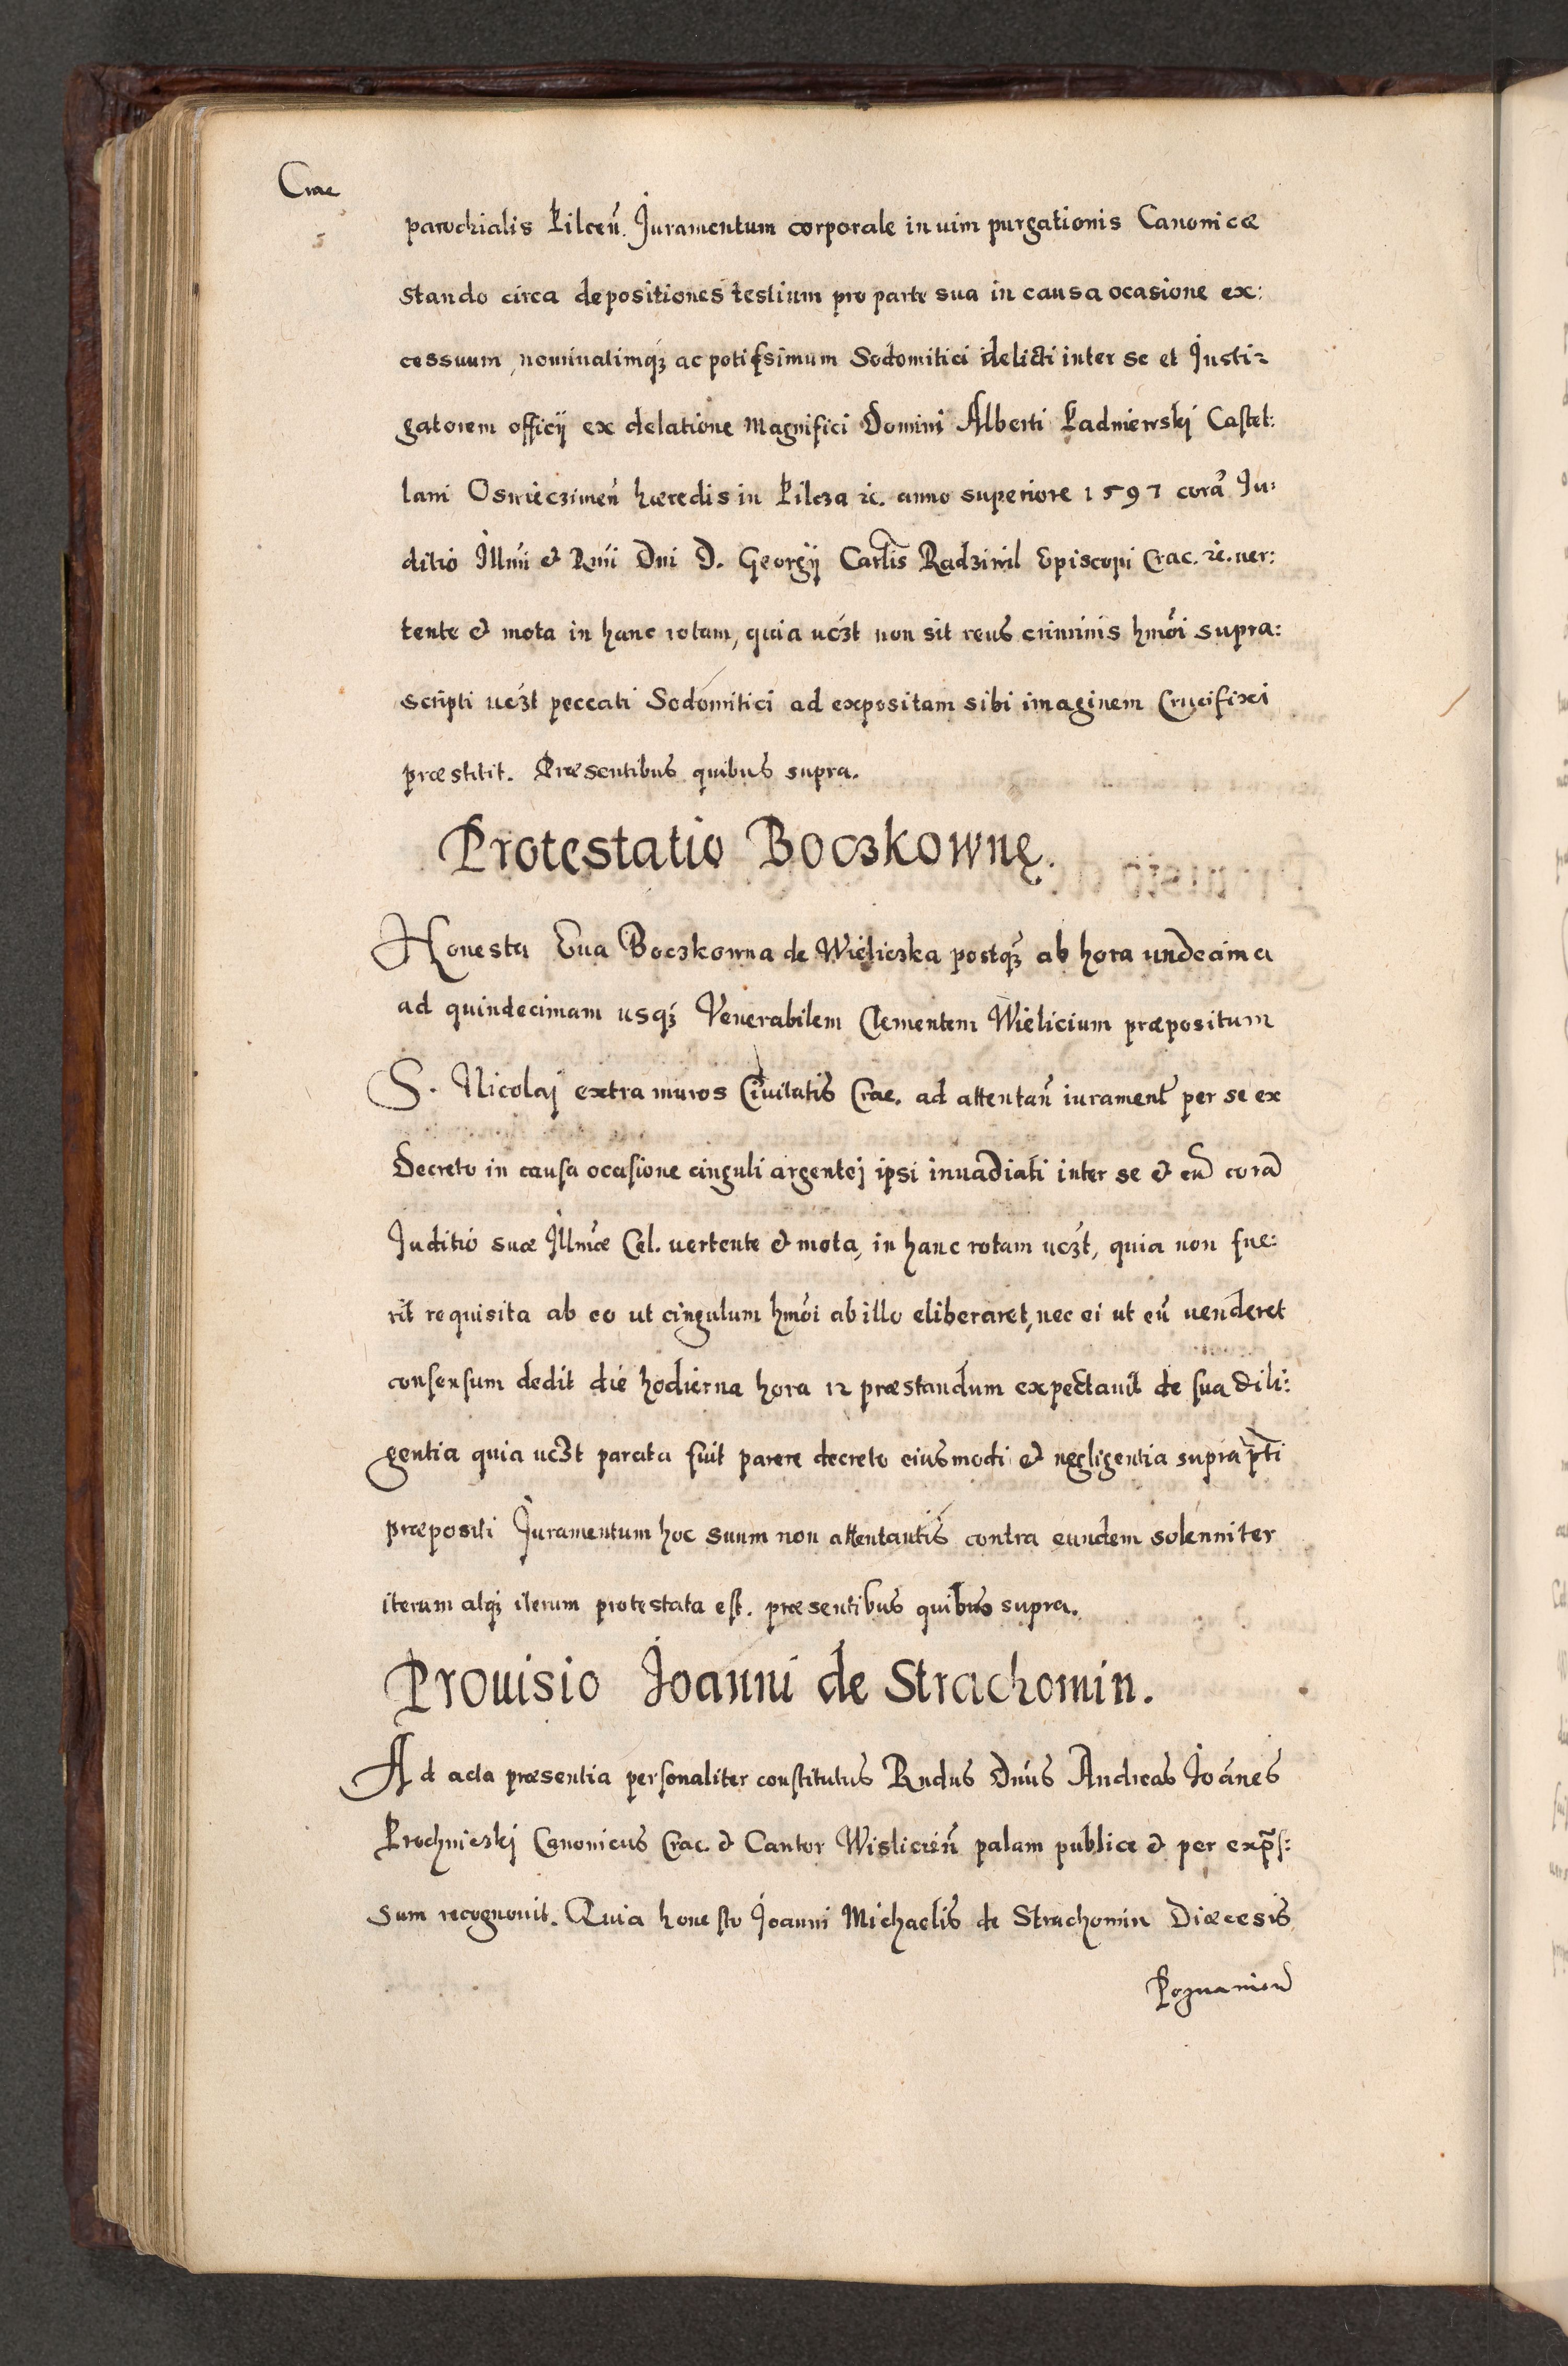 Crac
parochialis Kilceń. Juramentum corporale in uim purgationis Canonicæ
stando circa depositiones testium pro parte sua in causa ocasione ex:
cessuum, nominatimq; ac potissimum Sodomitici delicti inter se et Insti-
gatorem officij ex delatione Magnifici Domini Alberti Padniewskj Castel:
lani Oswieczimeń hæredis in Pilcza &c. anno superiore 1597 corã Ju:
ditio Illmi & Rmi Dni D. Georgij Carlis Radziwil Episcopi Crac. &c. uer:
tente & mota in hanc rotam, quia uczt non sit reus criminis hmõi supra:
scripti uczt peccati Sodomitici ad expositam sibi imaginem Crucifixi
præstitit. Præsentibus quibus supra.
Protestatio Boczkownę.
Honesta Eua Boczkowna de Wieliczka postq; ab hora undecima
ad quindecimam usq; Venerabilem Clementem Wielicium præpositum
S. Nicolaj extra muros Ciuitatis Crac. ad attentań iurament per se ex
Decreto in causa ocasione cinguli argentej ipsi inuadiati inter se & eũ corã
Juditio suæ Illmæ Cel. uertente & mota, in hanc rotam uczt, quia non fue:
rit requisita ab eo ut cingulum hmõi ab illo eliberaret, nec ei ut eũ uenderet
consensum dedit die hodierna hora 12 præstandum expectauit de sua dili:
gentia quia uczt parata fuit parere decreto eiusmodi & negligentia supra pti
præpositi Juramentum hoc suum non attentantis contra eundem solenniter
iterum atq; iterum protestata est. præsentibus quibus supra.
Prouisio Joanni de Strachomin.
Ad acta præsentia personaliter constitutus Rndus Dnus Andreas Joãnes
Prochniczkj Canonicus Crac. & Cantor Wisliceń palam publice & per exp̃s:
sum recognouit. Quia honesto Joanni Michaelis de Strachomin Diæcesis
Poznanień